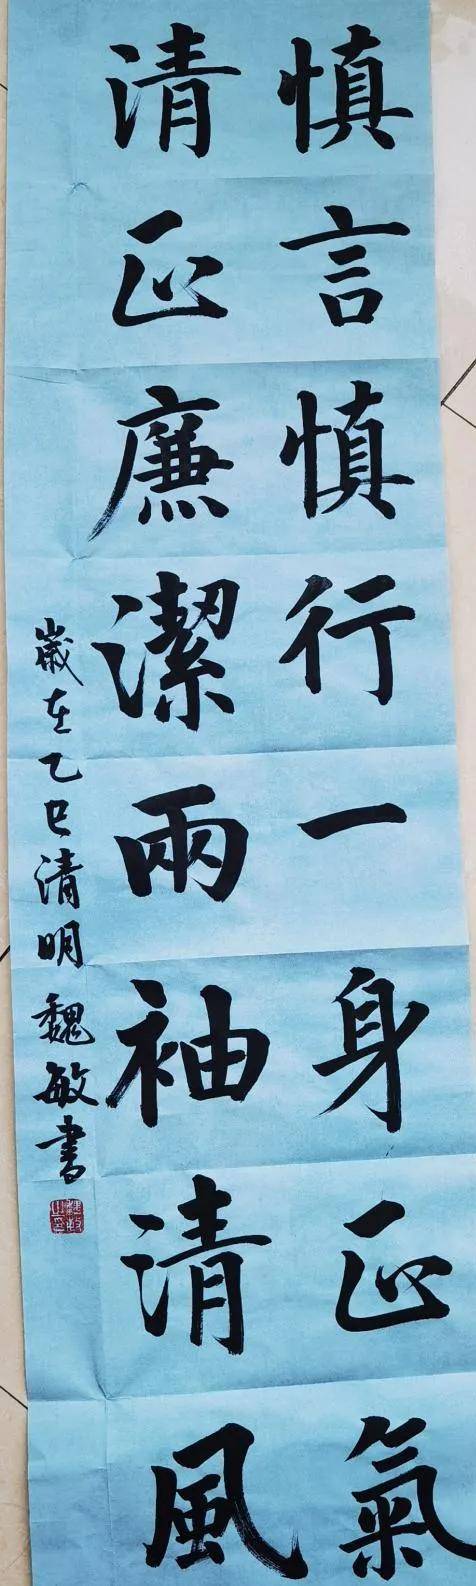 慎言慎行一身正氣
清正廉潔兩袖清風
歲在乙巳清明 魏敏書